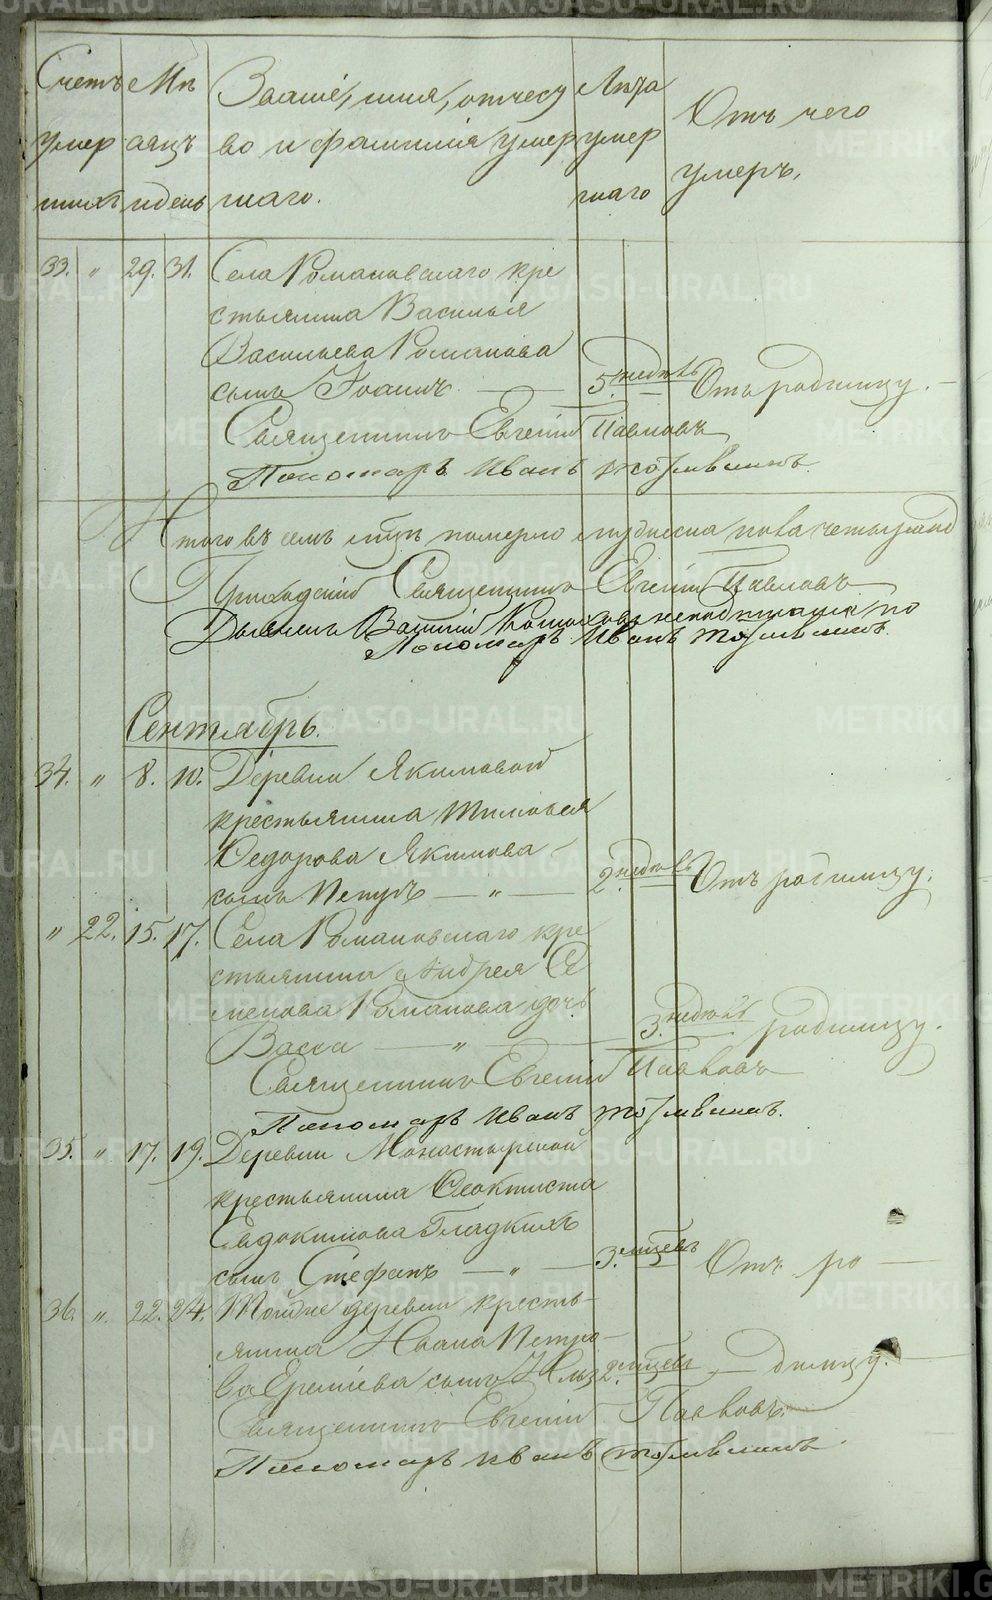 Счетъ Мѣ Званіе, имя, отчест Лѣта Отъ чего
умер сяцъ во и фамилія умер умер умеръ.
шихъ и день шаго. шаго
33. " 29. 31. Села Романовскаго кре
стьянина Василья
Васильева Романова
сынъ Іоаннъ — 5. недѣль Отъ родимцу. —
Священникъ Евгеній Павловъ
Пономарь Иванъ
Итого въ семъ мѣс. померло мужеска пола четыре
Приходскій Священникъ Евгеній Павловъ
Дьяконъ Василій
Пономарь Иванъ
Сентябрь.
34. " 8. 10. Деревни Якимовой
крестьянина Тимофея
Федорова Якимова
сынъ Петръ — " — 2. недѣль Отъ родимцу.
" 22. 15. 17. Села Романовскаго кре
стьянина Андрея Се
менова Романова дочь
Васса — " — 3. недѣль родимцу.
Священникъ Евгеній Павловъ
Пономарь Иванъ
35. " 17. 19. Деревни Монастырской
крестьянина Феоктиста
Евдокимова Гладкихъ
сынъ Стефанъ — " — 3. мѣсцевъ Отъ ро —
36. " 22. 24. Тойже деревни кресть-
янина Ивана Петро-
ва Еремѣева сынъ 2. мѣсцевъ — димцу.
Священникъ Евгеній Павловъ
Пономарь Иванъ
METRIKI.GASO-URAL.RU